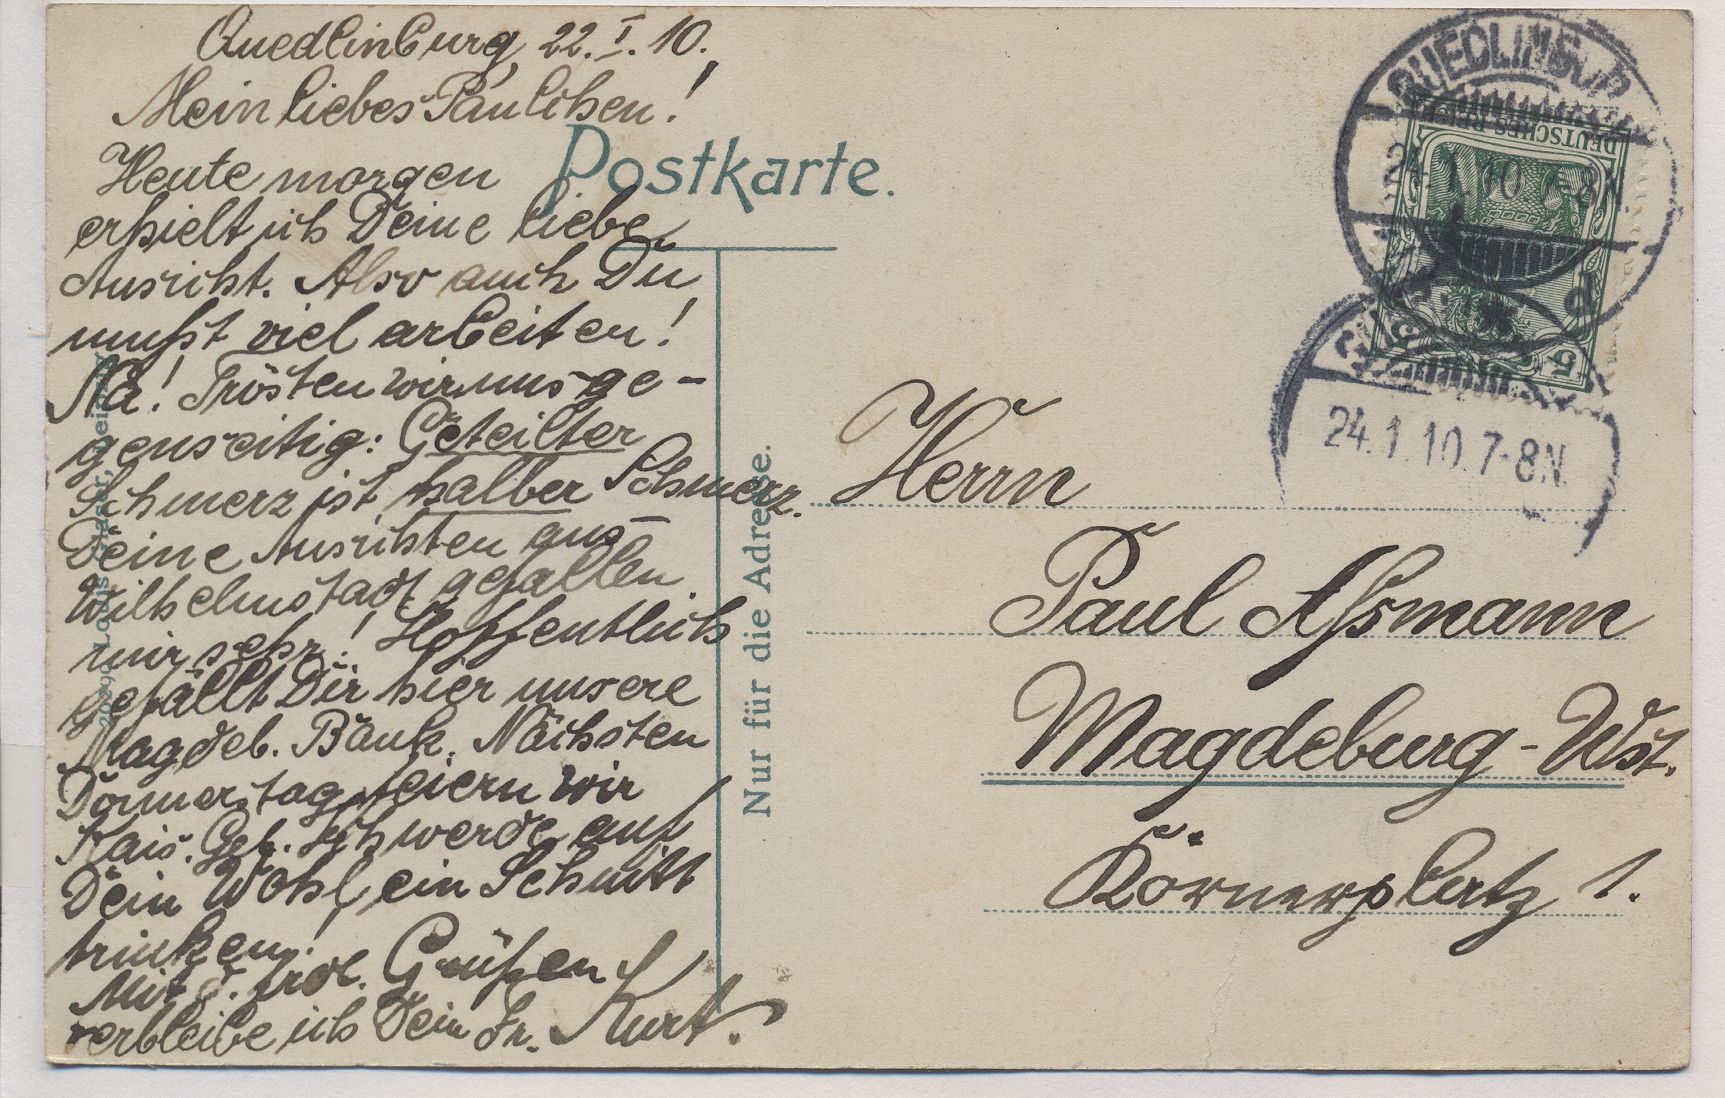 Quedlinburg, 22.I.10.
Mein liebes Paulchen!
Heute morgen
erhielt ich Deine liebe
Ansicht. Also auch Du
mußt viel arbeiten!
Na! Trösten wir uns ge-
genseitig: Geteilter
Schmerz ist halber Schmerz.
Deine Ansichten aus
Wilhelmstadt gefallen
mir sehr! Hoffentlich
gefällt Dir hier unsere
Magdeb. Bank. Nächsten
Donnerstag feiern wir
Kais. Geb. Ich werde auf
Dein Wohl ein Schnitt
trinken!
Mit d. Grüßen
verbleibe ich Dein Fr. Kurt.
Postkarte.
Nur für die Adresse.
20290 Louis Glaser, Leipzig
QUEDLINBURG
DEUTSCHES REICH
5
24.1.10.7-8N.
Herrn
Paul Assmann
Magdeburg-Wst.
Körnerplatz 1.